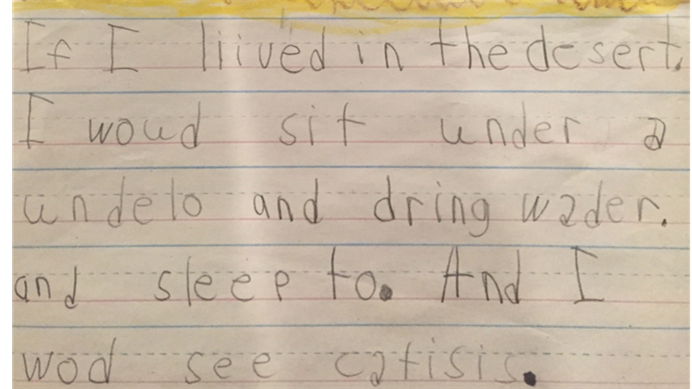 If I liived in the desert.
I woud sit under a
undelo and dring wader.
and sleep to. And I
wod see catisis.